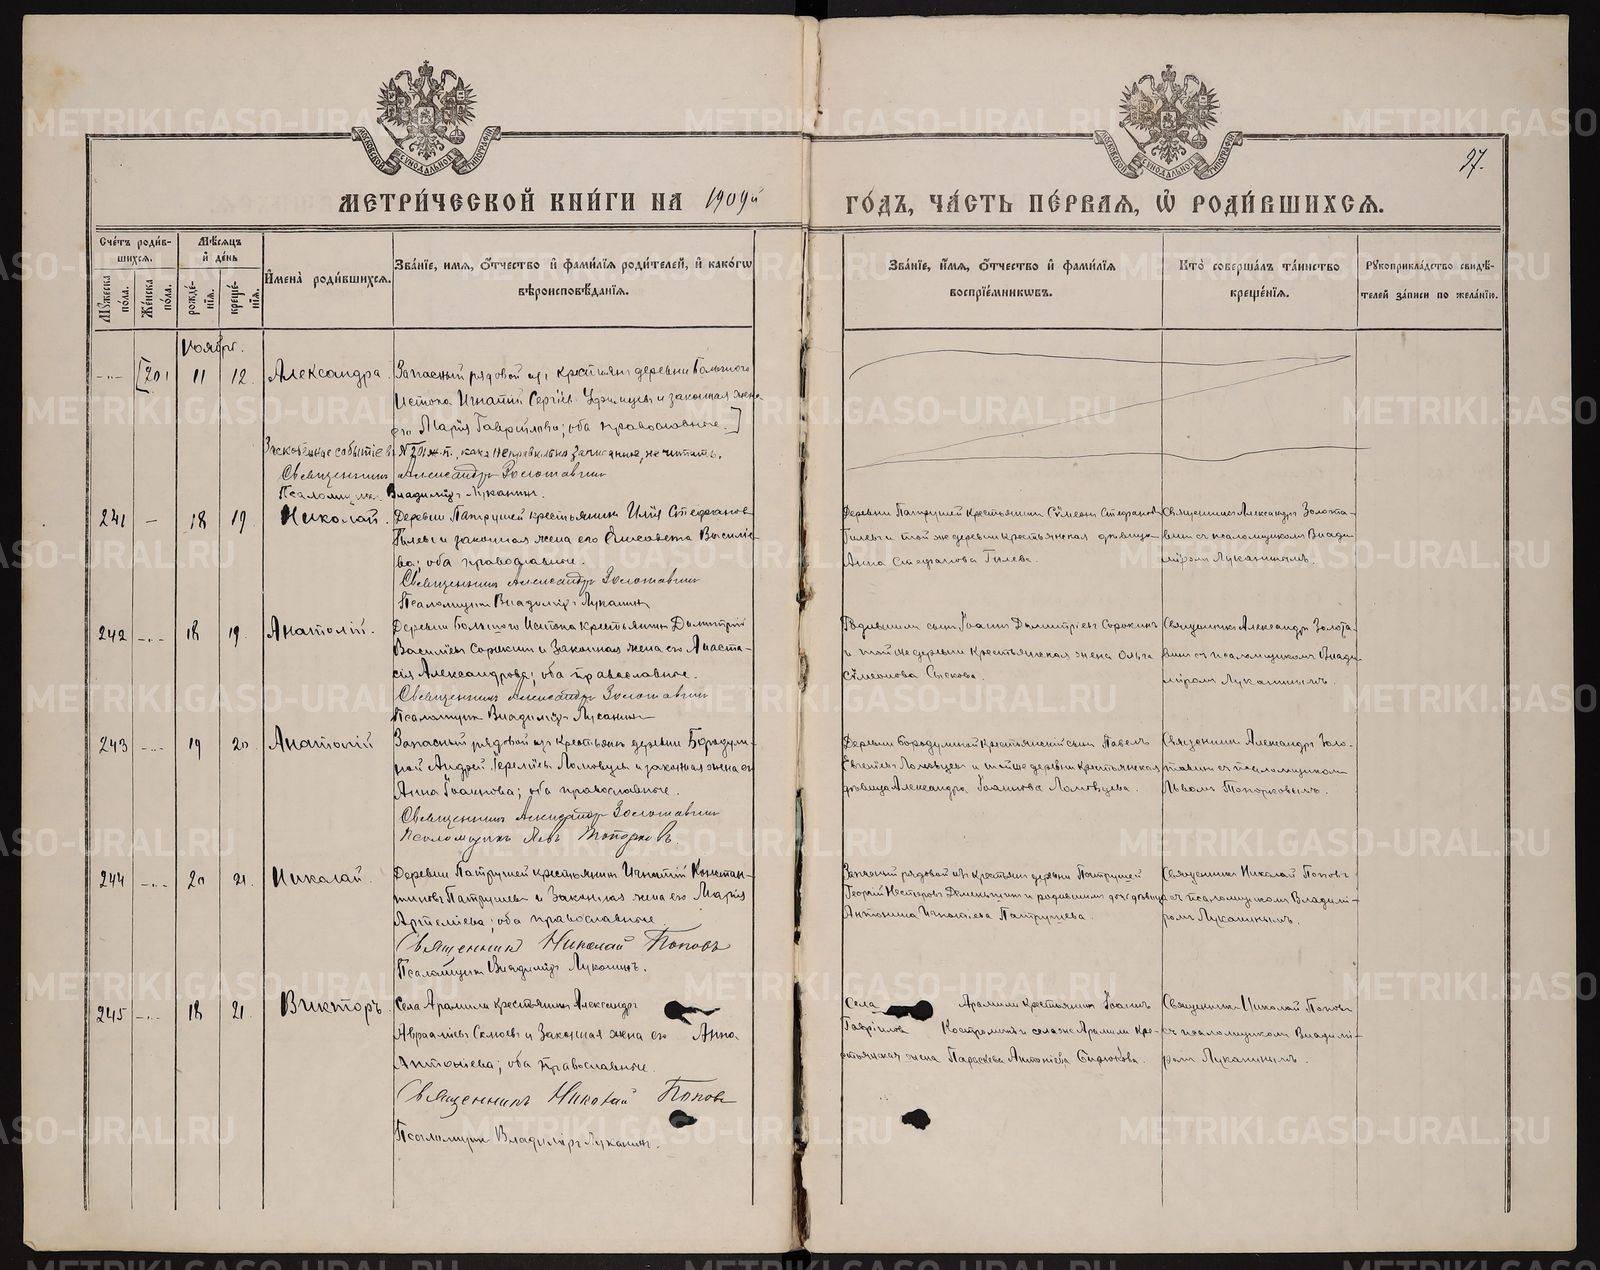 МЕТРИ́ЧЕСКОЙ КНИ́ГИ НА 1909й ГО́ДЪ, ЧА́СТЬ ПЕ́РВАЯ, Ѡ РОДИ́ВШИХСѦ.
27.
Сче́тъ роди́в-
шихсѧ.
Мѣ́сѧцъ
и де́нь
Мꙋ́жеска по́ла.
Же́нска по́ла.
рожде́-
нїѧ.
креще́-
нїѧ.
Имена̀ роди́вшихсѧ.
Зва́нїе, имѧ, ѻ҆́тчество и҆ фами́лїѧ роди́телей, и҆ како́гѡ
вѣроисповѣ́данїѧ.
Зва́нїе, и҆́мѧ, ѻ҆́тчество и҆ фами́лїѧ
воспрїе́мникѡвъ.
Кто̀ соверша́лъ та́инство
креще́нїѧ.
Рꙋкоприкла́дство свидѣ́-
телей за́писи по жела́нїю.
Ноябрь.
201 11 12. Александра. Запасный рядовой изъ крестьянъ деревни Большого
Истока Игнатій Сергіевъ и законная жена
его Марія Гаврілова; оба православные.]
событіе № 201 ж.п., какъ неправильно записанное, не читать.
Священникъ Александръ Золотавинъ
Псаломщикъ Владиміръ Луканинъ.
241 — 18 19. Николай. Деревни Патрушей крестьянинъ Илія Стефановъ
Гилевъ и законная жена его Елисавета Василіе-
ва; оба православные.
Священникъ Александръ Золотавинъ
Псаломщикъ Владиміръ Луканинъ
Деревни Патрушей крестьянинъ Сѵмеонъ Стефановъ
Гилевъ и той же деревни крестьянская дѣвица
Анна Стефанова Гилева.
Священникъ Александръ Золота-
винъ съ псаломщикомъ Влади-
міромъ Луканинымъ.
242 -"- 18 19. Анатолій. Деревни Большого Истока крестьянинъ Димитрій
Василіевъ Сорокинъ и законная жена его Анаста-
сія Александрова; оба православные.
Священникъ Александръ Золотавинъ
Псаломщикъ Владиміръ Луканинъ
Родившимъ сынъ Іоаннъ Димитріевъ Сорокинъ
и той же деревни крестьянская жена Ольга
Сѵмеонова
Священникъ Александръ Золота-
винъ съ псаломщикомъ Влади-
міромъ Луканинымъ.
243 -"- 19 20. Анатолій Запасный рядовой изъ крестьянъ деревни Бородули-
ной Андрей Ломовцевъ и законная жена его
Анна Іоаннова; оба православные.
Священникъ Александръ Золотавинъ
Псаломщикъ Левъ Топорковъ.
Деревни Бородулиной крестьянскій сынъ Павелъ
Евгеніевъ Ломовцевъ и той же деревни крестьянская
дѣвица Александра Іоаннова Ломовцева.
Священникъ Александръ Золо-
тавинъ съ псаломщикомъ
Львомъ Топорковымъ.
244 -"- 20 21. Николай. Деревни Патрушей крестьянинъ Игнатій Констан-
тиновъ Патрушевъ и законная жена его Марія
Артеміева; оба православные
Священникъ Николай Поповъ
Псаломщикъ Владиміръ Луканинъ.
Запасный рядовой изъ крестьянъ деревни Патрушей
Георгій Несторовъ и родившимъ дочь дѣвица
Антонина Игнатіева Патрушева.
Священникъ Николай Поповъ
съ псаломщикомъ Владимі-
ромъ Луканинымъ.
245 -"- 18 21. Викторъ. Села Арамили крестьянинъ Александръ
Авраамовъ и законная жена его Анна
Антоніева; оба православные.
Священникъ Николай Поповъ
Псаломщикъ Владиміръ Луканинъ.
Села Арамили крестьянинъ Іоаннъ
Гавріиловъ Костроминъ и села же Арамили кре-
стьянская жена Параскева Антоніева
Священникъ Николай Поповъ
съ псаломщикомъ Владимі-
ромъ Луканинымъ.
METRIKI.GASO-URAL.RU